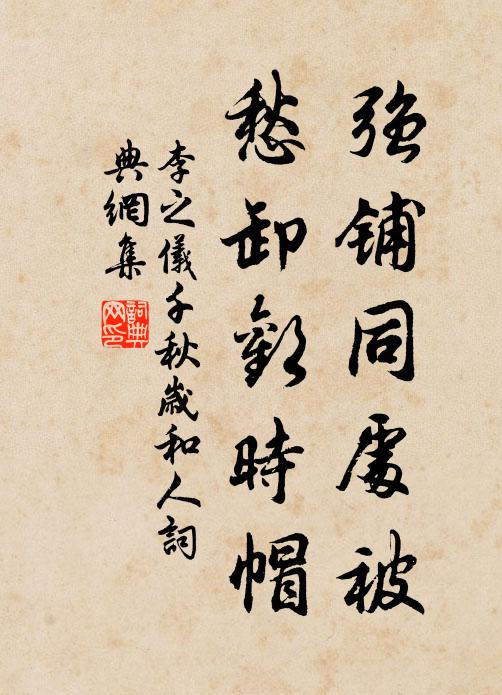 強鋪同處被
愁卸歡時帽
李之儀千秋歲和人詞
典網集
詞典網印